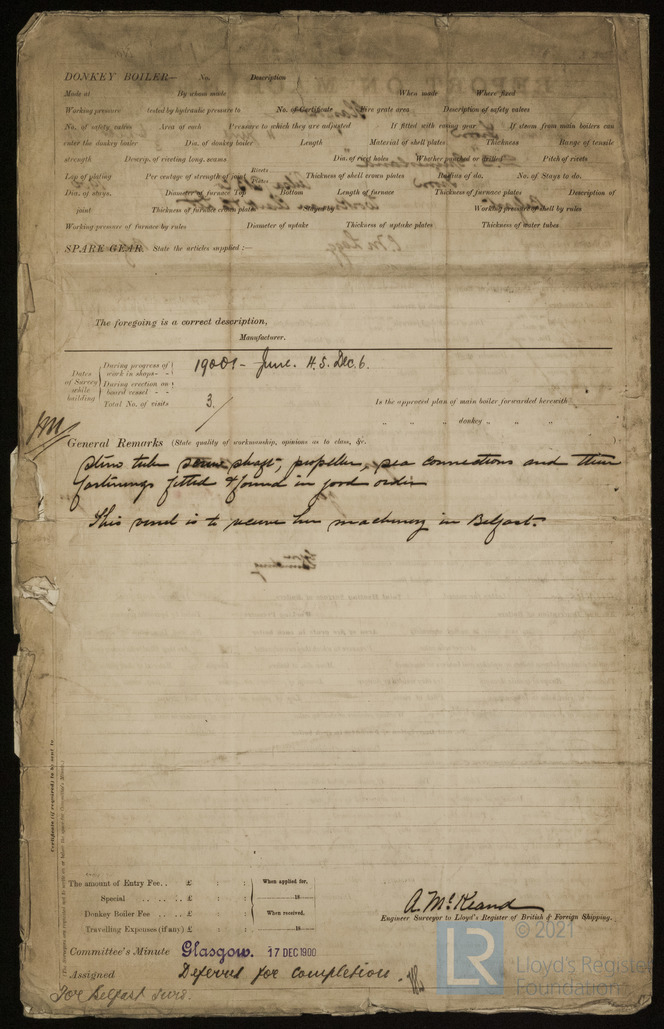 DONKEY BOILER— No. Description
Made at By whom made When made Where fixed
Working pressure tested by hydraulic pressure to No. of Certificate Fire grate area Description of safety valves
No. of safety valves Area of each Pressure to which they are adjusted If fitted with easing gear If steam from main boilers can
enter the donkey boiler Dia. of donkey boiler Length Material of shell plates Thickness Range of tensile
strength Descrip. of riveting long. seams Dia. of rivet holes Whether punched or drilled Pitch of rivets
Lap of plating Per centage of strength of joint Rivets Plates Thickness of shell crown plates Radius of do. No. of Stays to do.
Dia. of stays. Diameter of furnace Top Bottom Length of furnace Thickness of furnace plates Description of
joint Thickness of furnace crown plates Stayed by Working pressure of shell by rules
Working pressure of furnace by rules Diameter of uptake Thickness of uptake plates Thickness of water tubes
SPARE GEAR. State the articles supplied :—
The foregoing is a correct description,
Manufacturer.
Dates of Survey while building
During progress of work in shops - -
1900 - June. 4. 5. Dec. 6.
During erection on board vessel - -
Total No. of visits 3.
Is the approved plan of main boiler forwarded herewith
" " donkey " " "
General Remarks (State quality of workmanship, opinions as to class, &c.
Stern tube screw shaft, propeller, sea connections and their
fastenings fitted & found in good order
This vessel is to receive her machinery in Belfast.
Certificate (if required) to be sent to
The amount of Entry Fee. . . £ : : When applied for,
Special . . . . £ : : 18
Donkey Boiler Fee . . . . £ : : When received,
Travelling Expenses (if any) £ : : 18
A. McKeand
Engineer Surveyor to Lloyd's Register of British & Foreign Shipping.
Committee's Minute Glasgow. 17 DEC 1900
Assigned Deferred for completion.
For Belfast
© 2021
LR
Lloyd's Register
Foundation